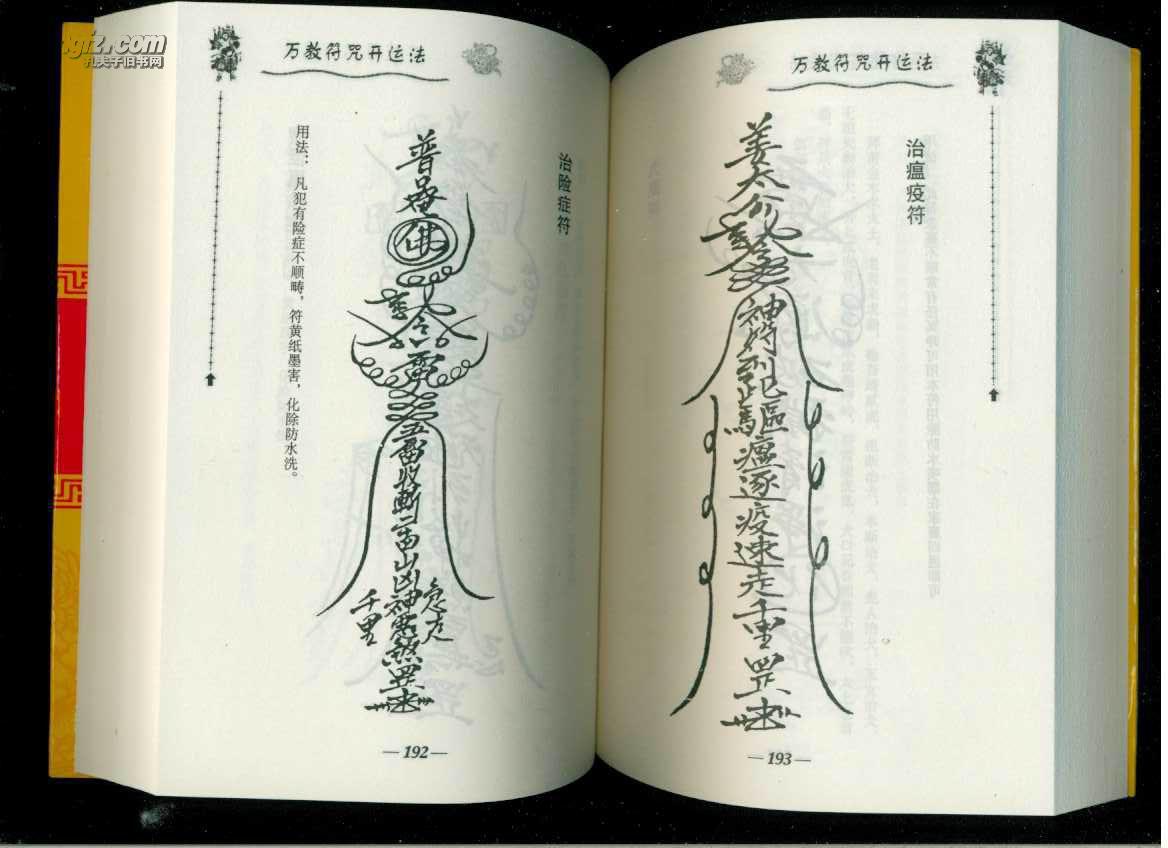 gfz.com
孔夫子旧书网
万教符咒开运法
治险症符
普唵
佛
令
五雷收斩
山凶神恶煞罡
急走
千里
用法：凡犯有险症不顺畴，符黄纸墨害，化除防水洗。
—192—
万教符咒开运法
治瘟疫符
姜太公
神符到此驅瘟逐疫速走千里罡
—193—